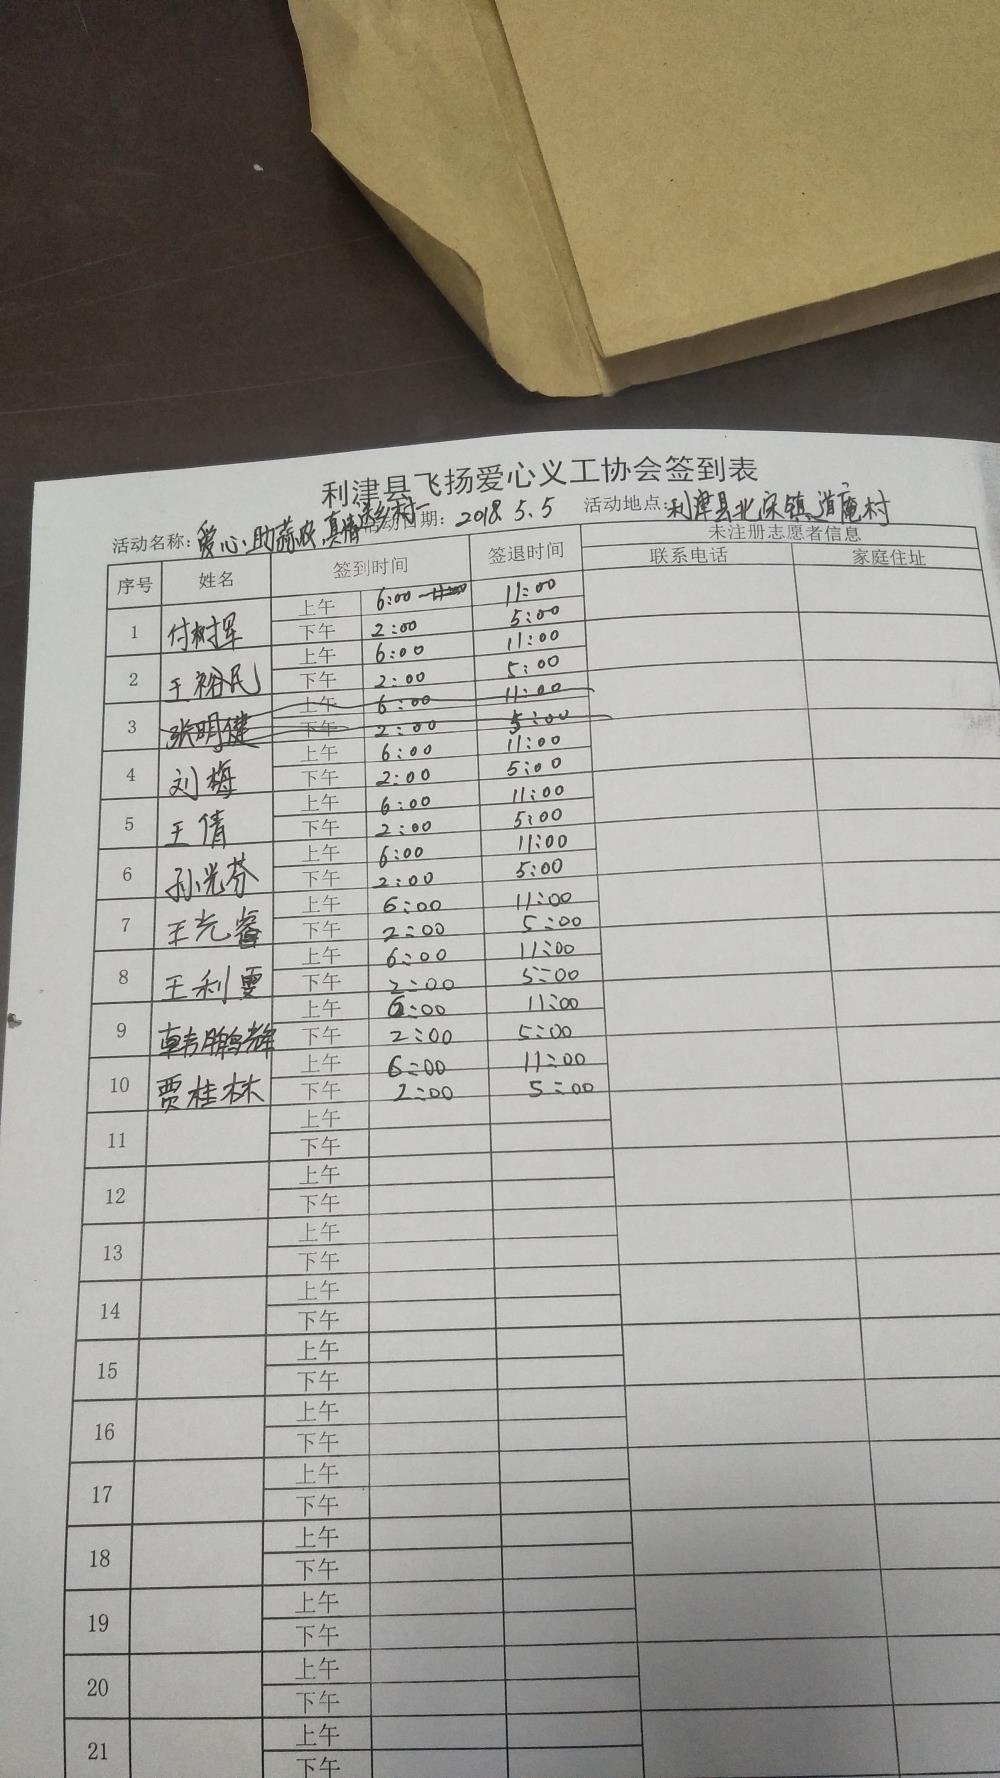 利津县飞扬爱心义工协会签到表
活动名称：爱心助蒜农,真情送乡村 活动日期：2018.5.5 活动地点：利津县北宋镇道庵村
序号 姓名 签到时间 签退时间 未注册志愿者信息
联系电话 家庭住址
1 付树军 上午 6:00 11:00
下午 2:00 5:00
2 王裕民 上午 6:00 11:00
下午 2:00 5:00
3 张明健 上午 6:00 11:00
下午 2:00 5:00
4 刘梅 上午 6:00 11:00
下午 2:00 5:00
5 王倩 上午 6:00 11:00
下午 2:00 5:00
6 孙光芬 上午 6:00 11:00
下午 2:00 5:00
7 王光睿 上午 6:00 11:00
下午 2:00 5:00
8 王利雯 上午 6:00 11:00
下午 2:00 5:00
9 韩鹏辉 上午 6:00 11:00
下午 2:00 5:00
10 贾桂林 上午 6:00 11:00
下午 2:00 5:00
11 上午
下午
12 上午
下午
13 上午
下午
14 上午
下午
15 上午
下午
16 上午
下午
17 上午
下午
18 上午
下午
19 上午
下午
20 上午
下午
21 上午
下午